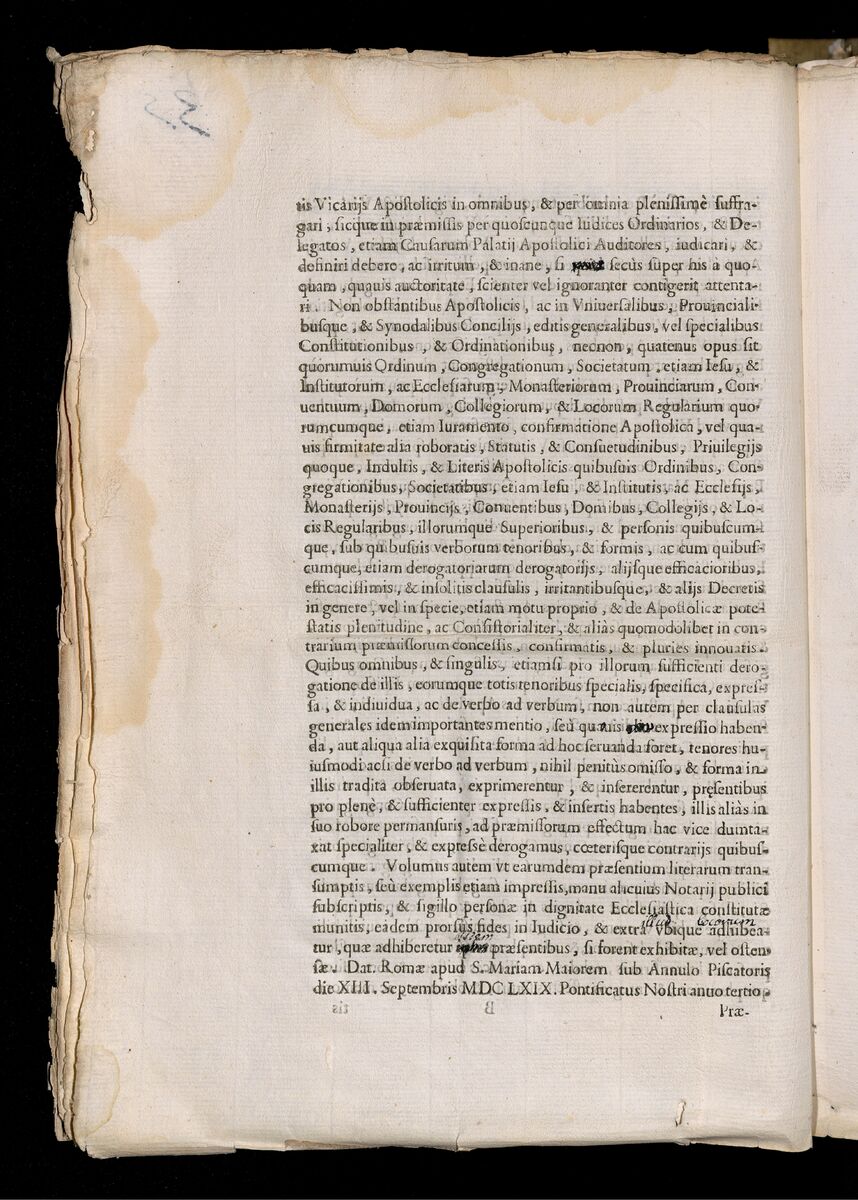 tis Vicarijs Apostolicis in omnibus, & per omnia plenissimè suffra-
gari, sicque in præmissis per quoscunque Iudices Ordinarios, & De-
legatos, etiam Causarum Palatij Apostolici Auditores, iudicari, &
definiri debere, ac irritum, & inane, si secùs super his à quo-
quam, quauis auctoritate, scienter vel ignoranter contigerit attenta-
ri. Non obstantibus Apostolicis, ac in Vniuersalibus, Prouinciali-
busque, & Synodalibus Concilijs, editis generalibus, vel specialibus
Constitutionibus, & Ordinationibus, necnon, quatenus opus sit
quorumuis Ordinum, Congregationum, Societatum, etiam Iesu, &
Institutorum, ac Ecclesiarum, Monasteriorum, Prouinciarum, Con-
uentuum, Domorum, Collegiorum, & Locorum Regularium quo-
rumcumque, etiam Iuramento, confirmatione Apostolica, vel qua-
uis firmitate alia roboratis, Statutis, & Consuetudinibus, Priuilegijs
quoque, Indultis, & Literis Apostolicis quibusuis Ordinibus, Con-
gregationibus, Societatibus, etiam Iesu, & Institutis, ac Ecclesijs,
Monasterijs, Prouincijs, Conuentibus, Domibus, Collegijs, & Lo-
cis Regularibus, illorumque Superioribus, & personis quibuscum-
que, sub quibusuis verborum tenoribus, & formis, ac cum quibus-
cumque, etiam derogatoriarum derogatorijs, alijsque efficacioribus,
efficacissimis, & insolitis clausulis, irritantibusque, & alijs Decretis
in genere, vel in specie, etiam motu proprio, & de Apostolicæ pote-
statis plenitudine, ac Consistorialiter, & aliàs quomodolibet in con-
trarium præmissorum concessis, confirmatis, & pluries innouatis.
Quibus omnibus, & singulis, etiamsi pro illorum sufficienti dero-
gatione de illis, eorumque totis tenoribus specialis, specifica, expres-
sa, & indiuidua, ac de verbo ad verbum, non autem per clausulas
generales idem importantes mentio, seù quæuis expressio haben-
da, aut aliqua alia exquisita forma ad hoc seruanda foret, tenores hu-
iusmodi acsi de verbo ad verbum, nihil penitùs omisso, & forma in
illis tradita obseruata, exprimerentur, & insererentur, pręsentibus
pro plenè, & sufficienter expressis, & insertis habentes, illis aliàs in
suo robore permansuris, ad præmissorum effectum hac vice dumta-
xat specialiter, & expressè derogamus, cœterisque contrarijs quibus-
cumque. Volumus autem vt earumdem præsentium literarum tran-
sumptis, seù exemplis etiam impressis, manu alicuius Notarij publici
subscriptis, & sigillo personæ in dignitate Ecclesiastica constitutæ
munitis, eadem prorsùs fides in Iudicio, & extra illud vbique locorum adhibea-
tur, quæ adhiberetur ipsem præsentibus, si forent exhibitæ, vel osten
sæ. Dat. Romæ apud S. Mariam Maiorem sub Annulo Piscatoris
die XIII. Septembris MDCLXIX. Pontificatus Nostri anuo tertio.
Præ-